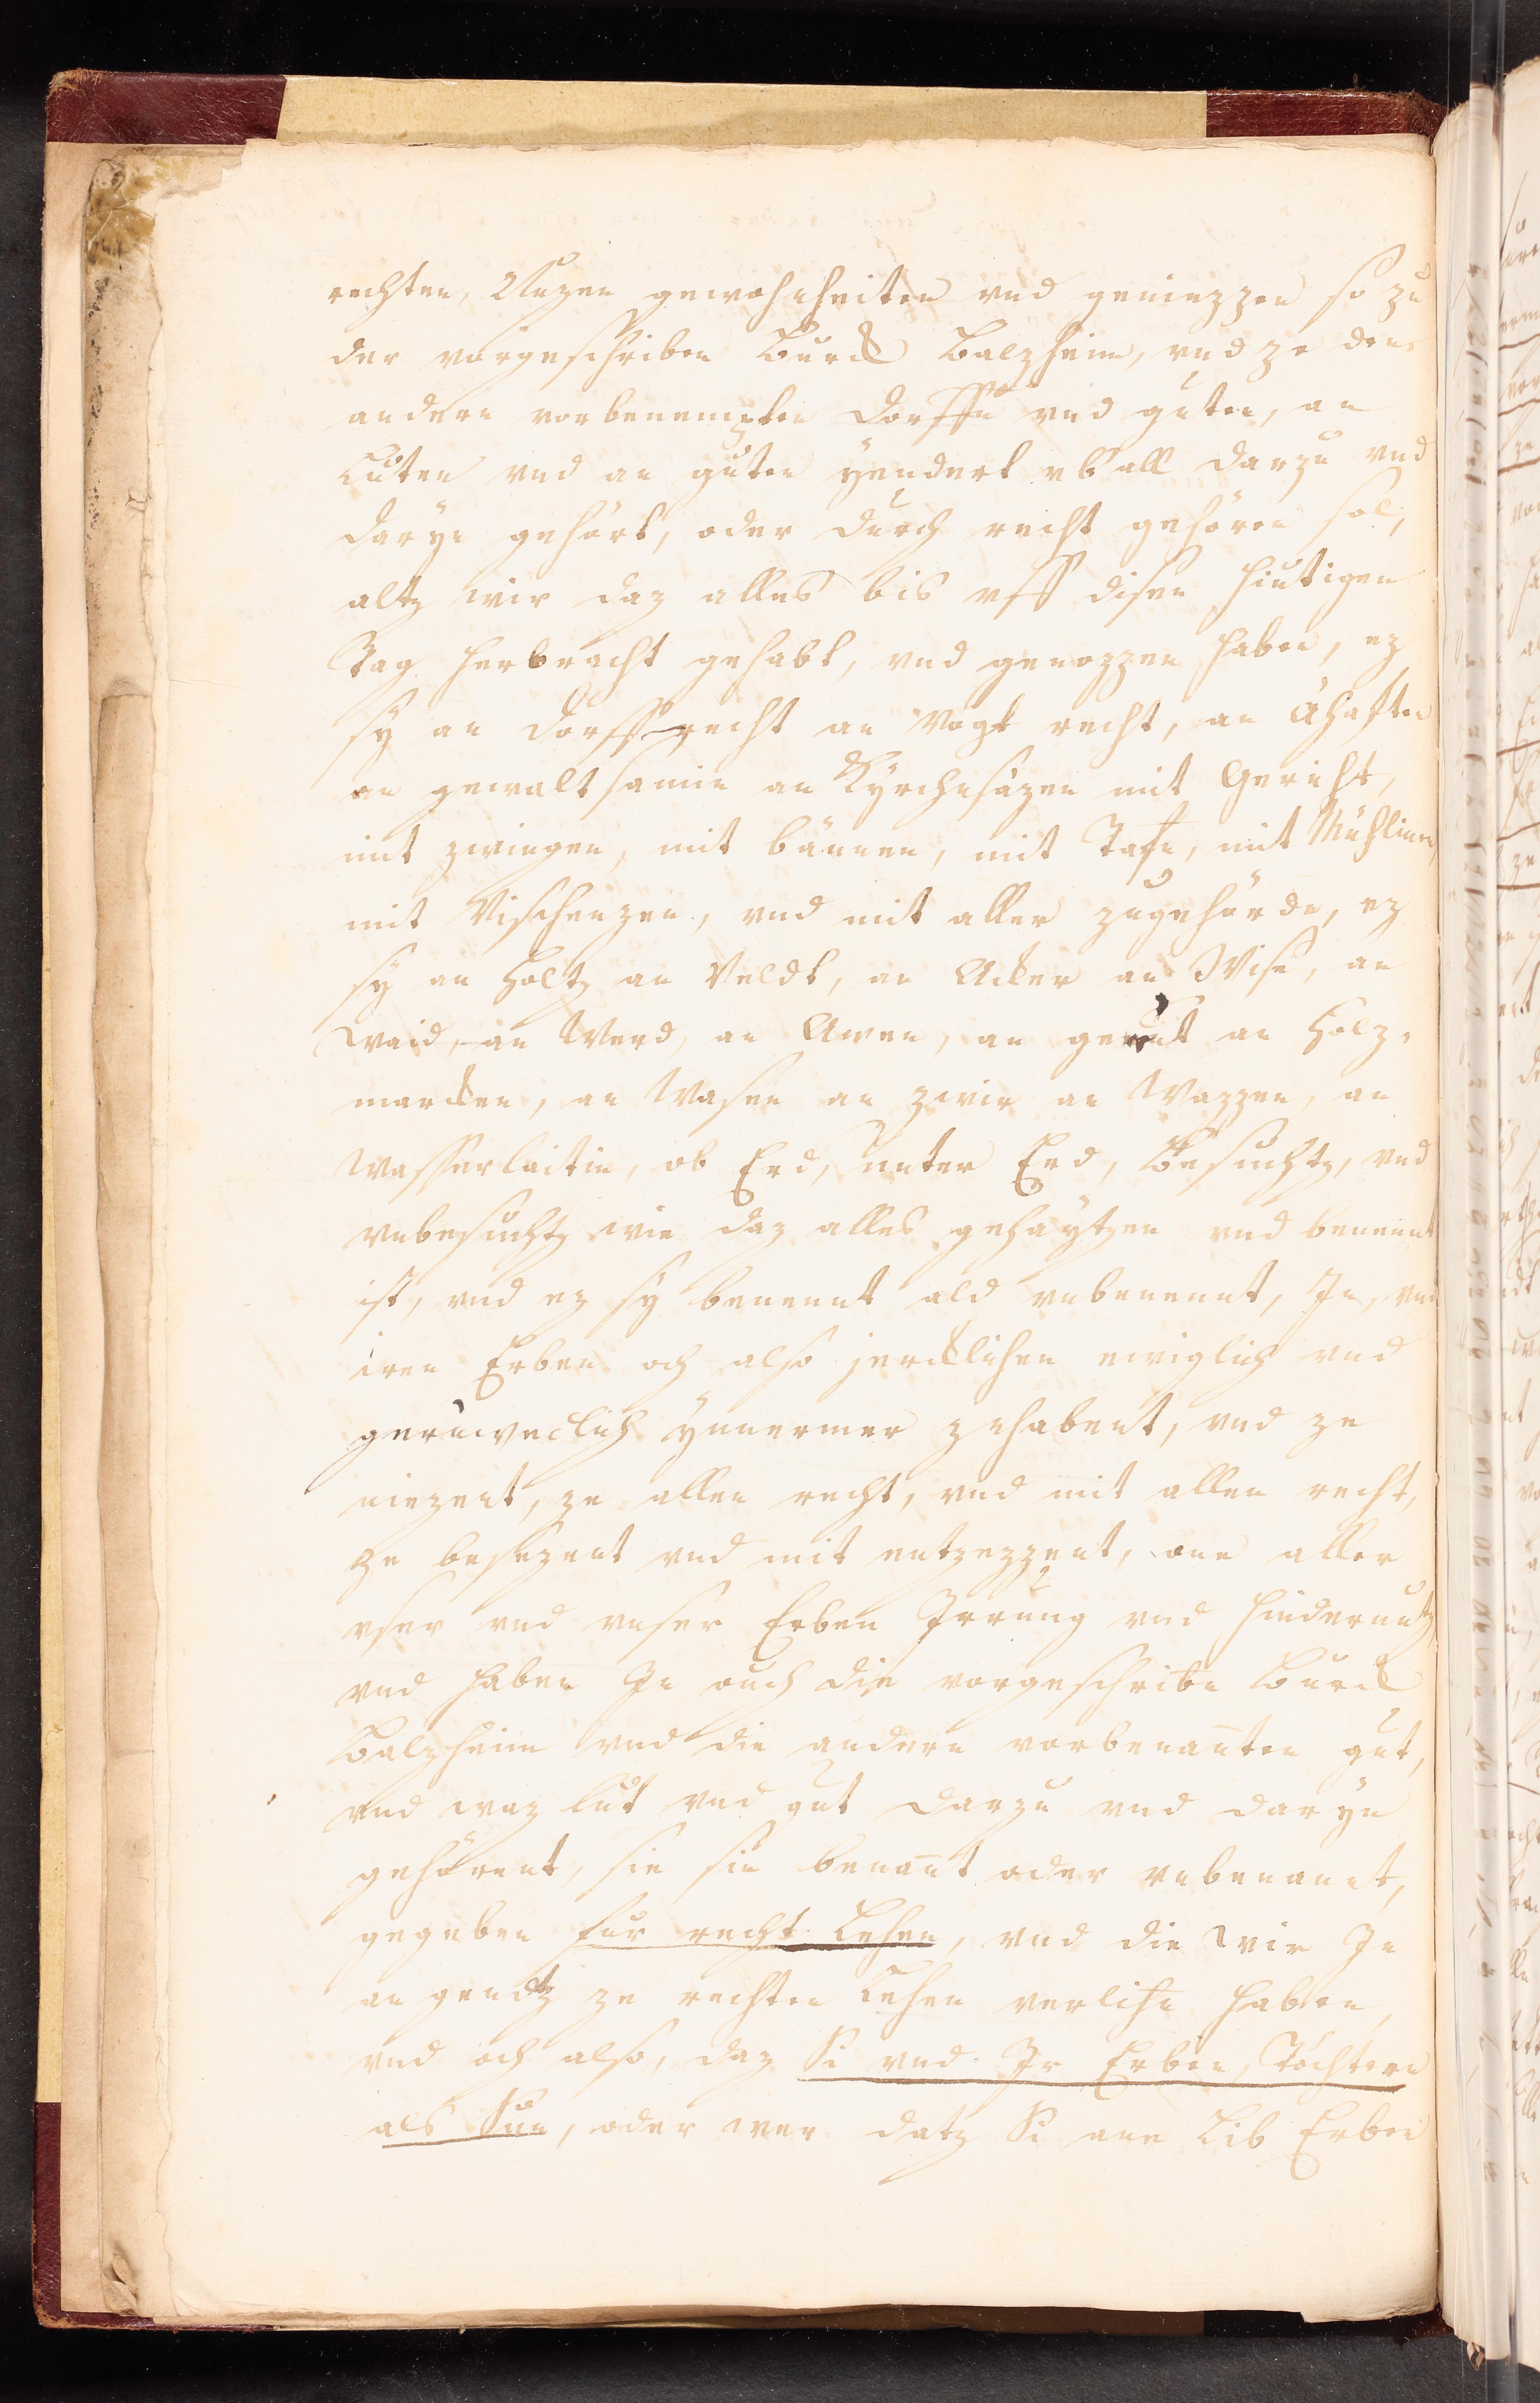 rechten, Nuzen gewohnheiten vnd geniezzen so zu
der vorgeschriben Burck Balzheim, vnd ze den
andern vorbenempten Dorffn vnd guten, an
Luten vnd an guten ÿendert vb all darzu vnd
darÿn gehört, oder durch recht gehören sol,
altz wir daz alles bis vff disen hiutigen
Tag herbracht gehabt, vnd genozzen haben, ez
sÿ an Dorffrecht an Vogt recht, an Ähaften
an gewaltsamin an Kÿrchesäzen mit Gericht,
mit zwingen, mit bännen, mit Tafn, mit Mühlinen,
mit Vischenzen, vnd mit aller zugehörde, ez
sÿ an Holtz an Veldt, an Acker an Wise, an
Waid, an Werd, an Awen, an gerüt an Holz,
marcken, an Wasen an zwir an Wazzen, an
Wasserlaitin, ob Erd, unter Erd, Besuchtz, vnd
vnbesuchtz wie daz alles gehaÿtzen vnd benennt
ist, vnd ez sÿ benennt ald vnbenennt, In, vnd
iren Erben och also jercklichen ewiglich vnd
geruweclich ÿnnermer zehabent, vnd ze
niezent, ze allen recht, vnd mit allen recht,
ze besezent vnd mit entzezzent, one aller
vser vnd vnser Erben Irrung vnd hinderniutz
vnd haben In ouch die vorgeschribn Burck
Balzheim vnd die andern vorbenanten gut,
vnd waz lut vnd gut darzu vnd darÿn
gehörent, sie sin benant oder vnbenannt,
gegeben fur recht Lehen, vnd die wir In
an gendtz ze rechten Lehen verlihn haben,
vnd och also, daz Si vnd Ir Erben, Töchtern
als Sun, oder wer datz Si ane Lib Erben